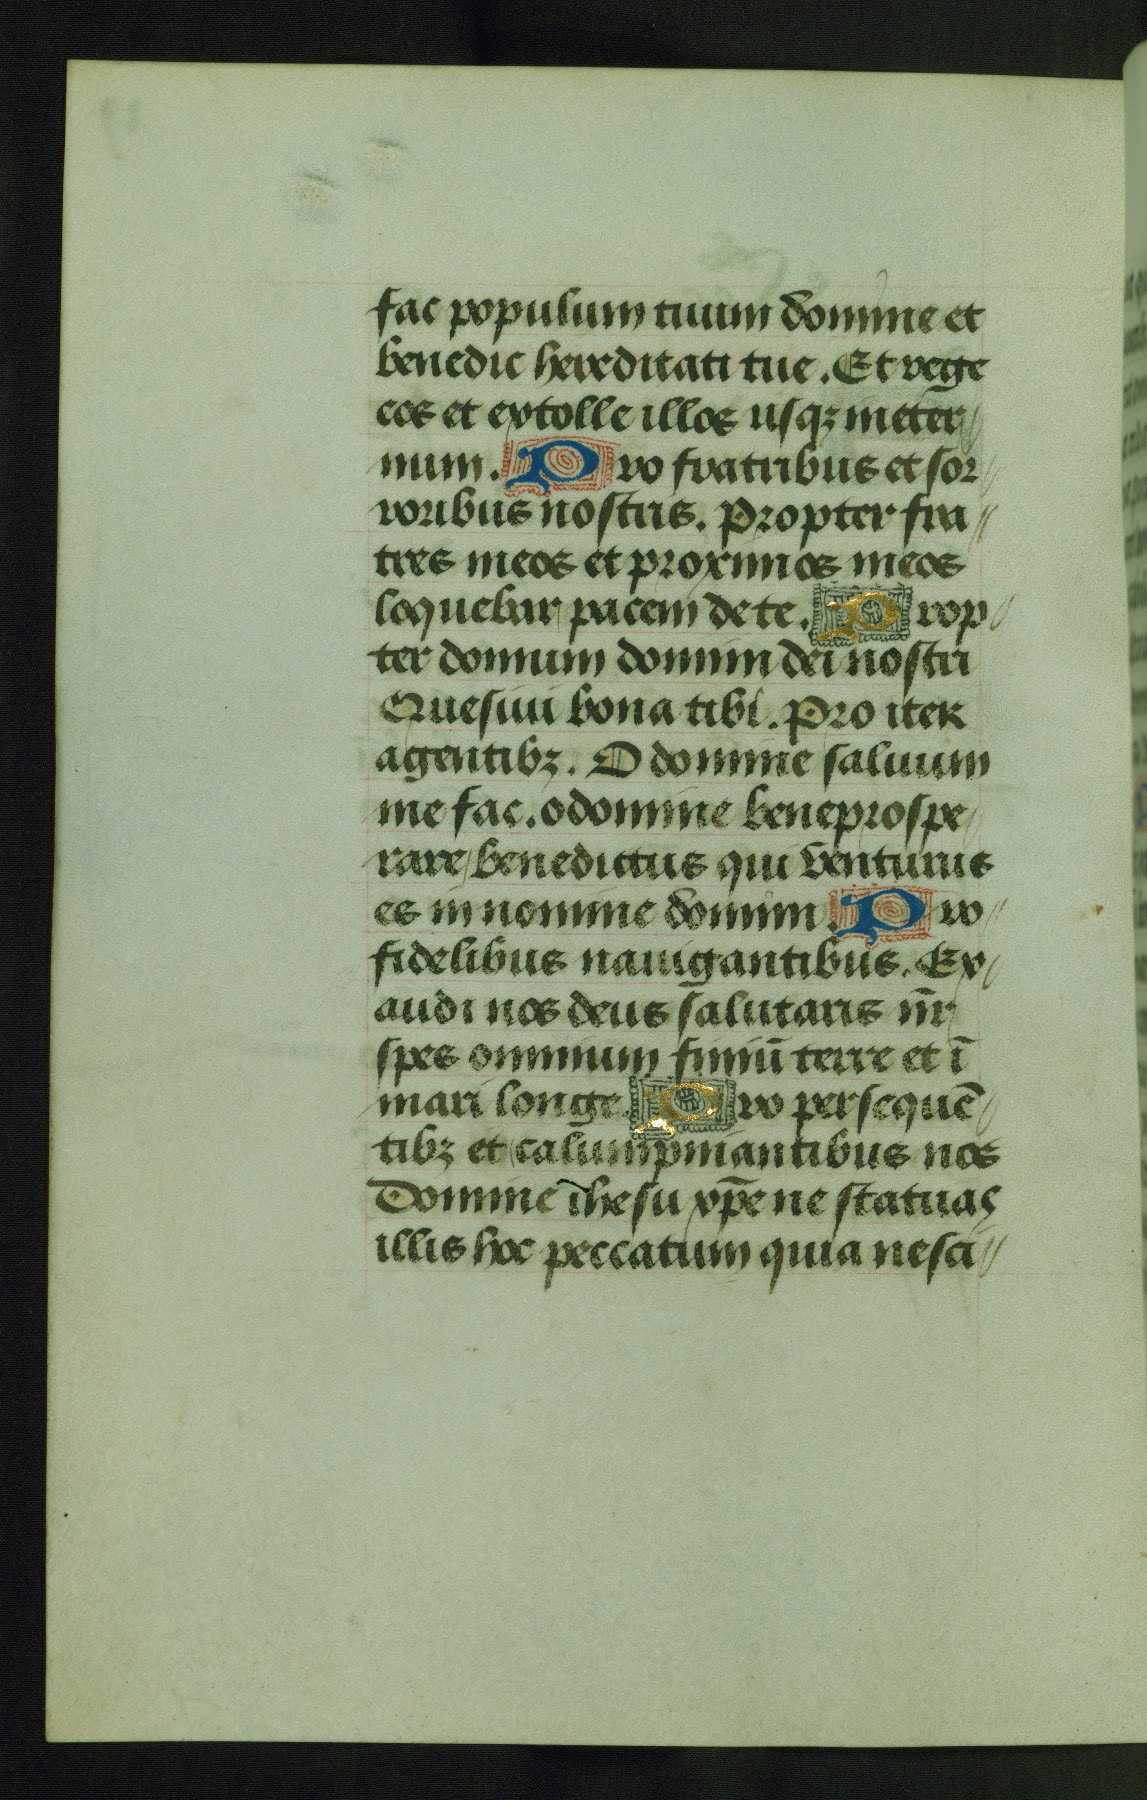 fac populum tuum domine et
benedic hereditati tue. Et rege
eos et extolle illos usqꝫ in eter
num. Pro fratribus et sor
roribus nostris. Propter fra
tres meos et proximos meos
loquebar pacem de te. Prop
ter domum domini dei nostri
Quesiui bona tibi. Pro iter
agentibꝫ. O domine saluum
me fac. o domine bene prospe
rare benedictus qui venturus
es in nomine domini. Pro
fidelibus nauigantibus. Ex
audi nos deus salutaris nr̄
spes omnium finiū terre et ī
mari longe. Pro persequē
tibꝫ et calumpniantibus nos
Domine ihesu xp̄e ne statuas
illis hoc peccatum quia nesci